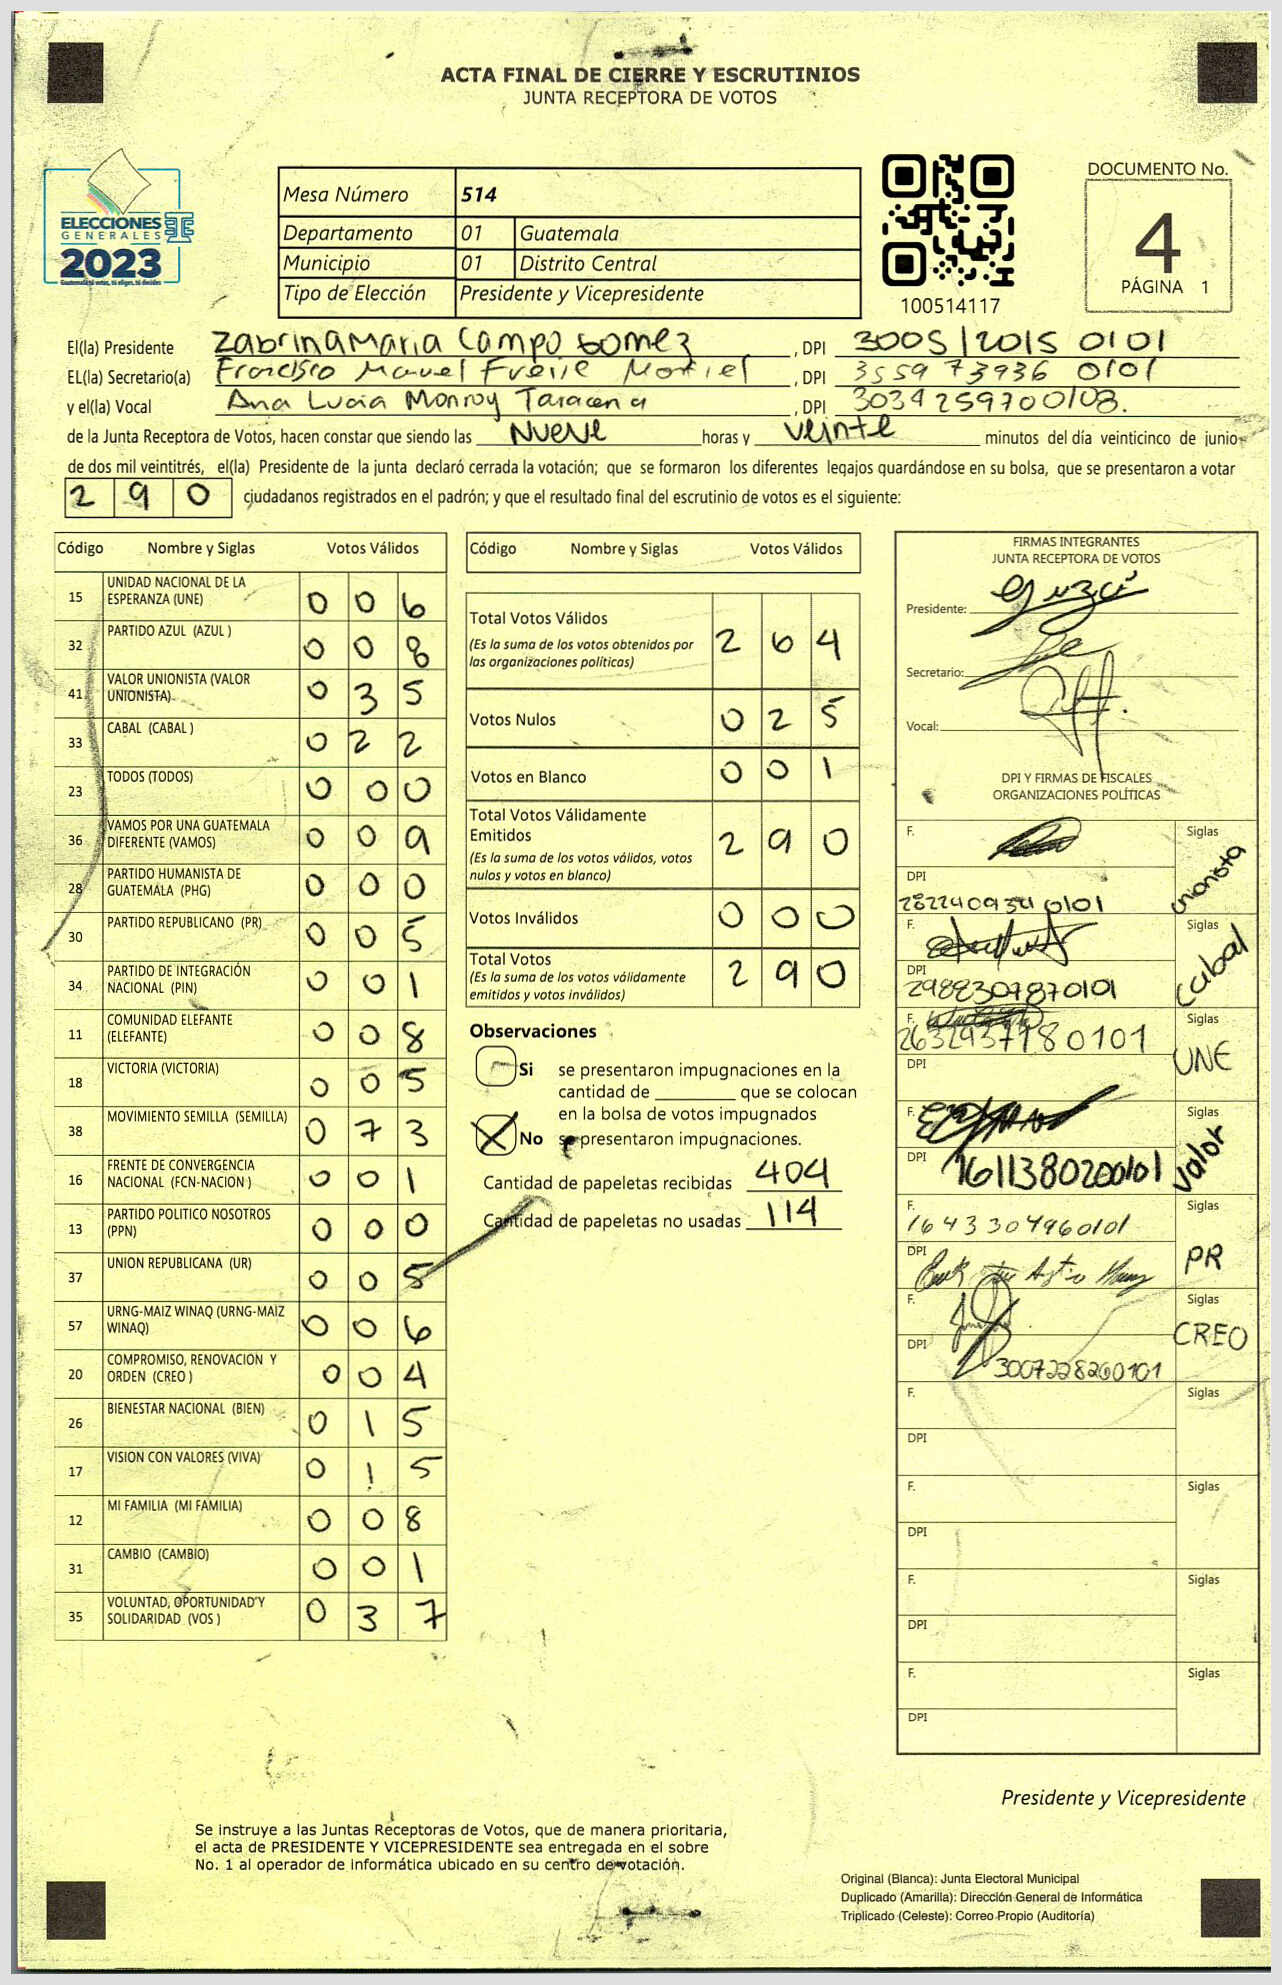 ACTA FINAL DE CIERRE Y ESCRUTINIOS
JUNTA RECEPTORA DE VOTOS
ELECCIONES
GENERALES
2023
Guatemala tú votas, tú eliges, tú decides
Mesa Número 514
Departamento 01 Guatemala
Municipio 01 Distrito Central
Tipo de Elección Presidente y Vicepresidente
100514117
DOCUMENTO No.
4
PÁGINA 1
El(la) Presidente Zabrina Maria Campo Gomez , DPI 3005120150101
EL(la) Secretario(a) Francisco Manuel Freire Montiel , DPI 3559 73936 0101
y el(la) Vocal Ana Lucia Monroy Taracena , DPI 3034259700108.
de la Junta Receptora de Votos, hacen constar que siendo las Nueve horas y veinte minutos del día veinticinco de junio
de dos mil veintitrés, el(la) Presidente de la junta declaró cerrada la votación; que se formaron los diferentes legajos guardándose en su bolsa, que se presentaron a votar
290 ciudadanos registrados en el padrón; y que el resultado final del escrutinio de votos es el siguiente:
Código Nombre y Siglas Votos Válidos
15 UNIDAD NACIONAL DE LA
ESPERANZA (UNE) 0 0 6
32 PARTIDO AZUL (AZUL ) 0 0 8
41 VALOR UNIONISTA (VALOR
UNIONISTA) 0 3 5
33 CABAL (CABAL ) 0 2 2
23 TODOS (TODOS) 0 0 0
36 VAMOS POR UNA GUATEMALA
DIFERENTE (VAMOS) 0 0 9
28 PARTIDO HUMANISTA DE
GUATEMALA (PHG) 0 0 0
30 PARTIDO REPUBLICANO (PR) 0 0 5
34 PARTIDO DE INTEGRACIÓN
NACIONAL (PIN) 0 0 1
11 COMUNIDAD ELEFANTE
(ELEFANTE) 0 0 8
18 VICTORIA (VICTORIA) 0 0 5
38 MOVIMIENTO SEMILLA (SEMILLA) 0 7 3
16 FRENTE DE CONVERGENCIA
NACIONAL (FCN-NACION ) 0 0 1
13 PARTIDO POLITICO NOSOTROS
(PPN) 0 0 0
37 UNION REPUBLICANA (UR) 0 0 5
57 URNG-MAIZ WINAQ (URNG-MAIZ
WINAQ) 0 0 6
20 COMPROMISO, RENOVACION Y
ORDEN (CREO ) 0 0 4
26 BIENESTAR NACIONAL (BIEN) 0 1 5
17 VISION CON VALORES (VIVA) 0 1 5
12 MI FAMILIA (MI FAMILIA) 0 0 8
31 CAMBIO (CAMBIO) 0 0 1
35 VOLUNTAD, OPORTUNIDAD Y
SOLIDARIDAD (VOS ) 0 3 7
Código Nombre y Siglas Votos Válidos
Total Votos Válidos
(Es la suma de los votos obtenidos por
las organizaciones políticas) 2 6 4
Votos Nulos 0 2 5
Votos en Blanco 0 0 1
Total Votos Válidamente
Emitidos
(Es la suma de los votos válidos, votos
nulos y votos en blanco) 2 9 0
Votos Inválidos 0 0 0
Total Votos
(Es la suma de los votos válidamente
emitidos y votos inválidos) 2 9 0
Observaciones
Si se presentaron impugnaciones en la
cantidad de que se colocan
en la bolsa de votos impugnados
No se presentaron impugnaciones.
Cantidad de papeletas recibidas 404
Cantidad de papeletas no usadas 114
FIRMAS INTEGRANTES
JUNTA RECEPTORA DE VOTOS
Presidente:
Secretario:
Vocal:
DPI Y FIRMAS DE FISCALES
ORGANIZACIONES POLÍTICAS
F. Siglas
DPI unionista
2822409340101
F. Siglas
DPI cabal
2988307870101
F. Siglas
2632937180101
DPI UNE
F. Siglas
DPI 1611380200101 valor
F. Siglas
1643304960101
DPI PR
F. Siglas
DPI CREO
3007228260101
F. Siglas
DPI
F. Siglas
DPI
F. Siglas
DPI
F. Siglas
DPI
Presidente y Vicepresidente
Se instruye a las Juntas Receptoras de Votos, que de manera prioritaria,
el acta de PRESIDENTE Y VICEPRESIDENTE sea entregada en el sobre
No. 1 al operador de informática ubicado en su centro de votación.
Original (Blanca): Junta Electoral Municipal
Duplicado (Amarilla): Dirección General de Informática
Triplicado (Celeste): Correo Propio (Auditoría)